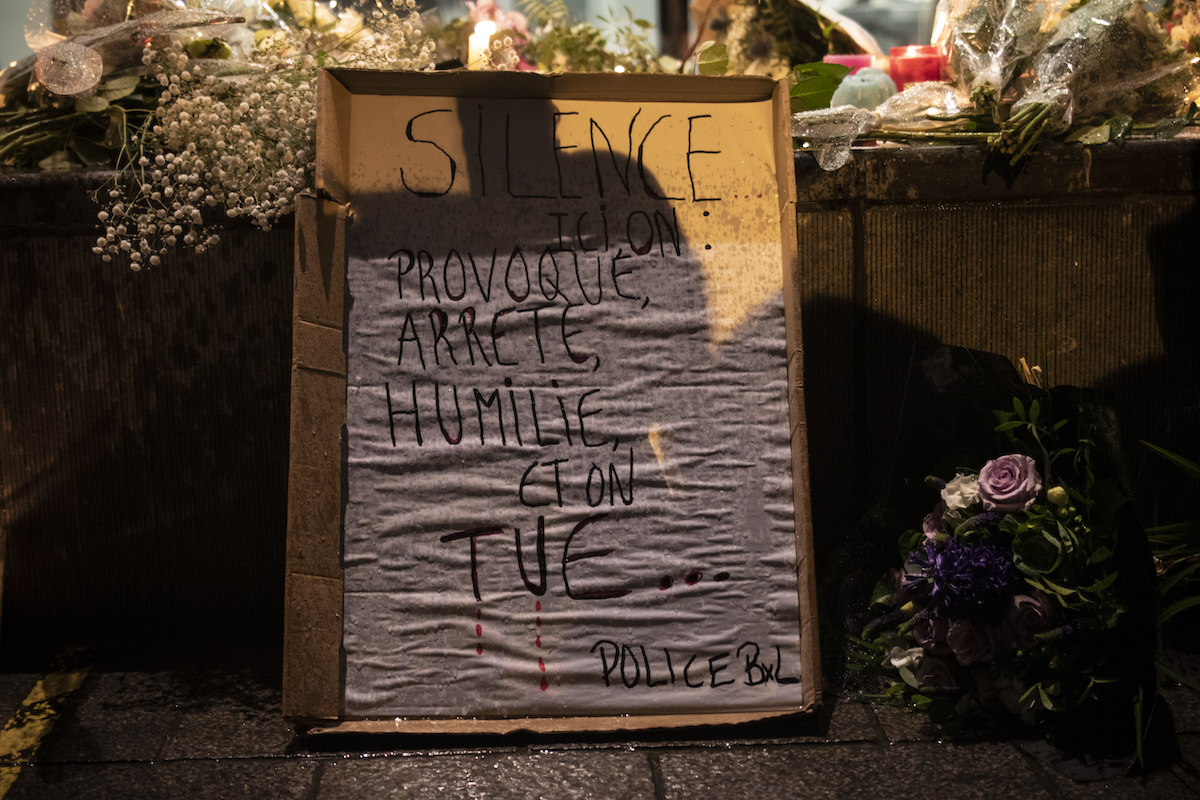 SiLENCE...
ICI ON :
PROVOQUE,
ARRETE,
HUMiLiE,
ET ON
TUE...
POLICE BXL